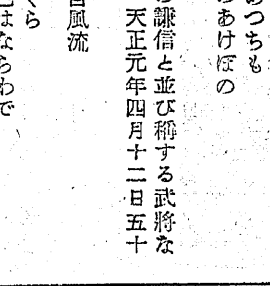 つちも
のあけぼの
謙信と並び稱する武將な
天正元年四月十二日五十
風流
くら
はならわで